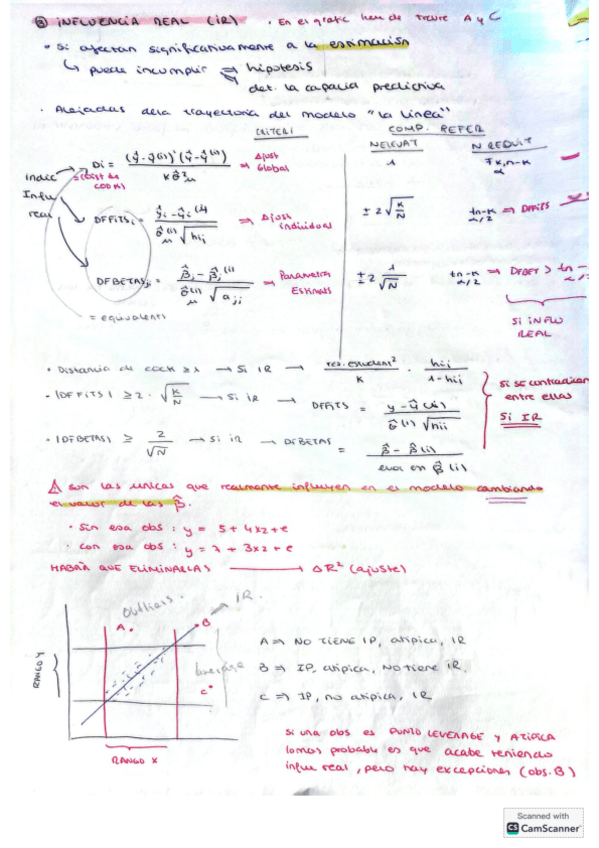 ③ INFLUENCIA REAL (IR) · En el gráfic han de treure A y C
• Si afectan significativamente a la estimación
↳ puede incumplir ⇒ hipótesis
det. la capacid predictiva
· Alejadas de la trayectoria del modelo "la línea"
CRITERI COMP. REFER
NELUAT N REDUIT
Indic Influ real
Di = (Ŷ-Ŷ(i))'(Ŷ-Ŷ(i)) / k σ̂²u ⇒ Ajust Global 1 Fk,n-k α
= (Dist de COOK)
DFFITSi = ŷi - ŷi (i) / σ̂(i)u √hii ⇒ Ajust individual ± 2 √k/N tn-k α/2 ⇒ Dffits
DFBETASji = β̂j - β̂j(i) / σ̂(i)u √ajj ⇒ Parametros Estimats ± 2 1/√N tn-k α/2 ⇒ DFBET > tn-
= equivalents
SI INFLU REAL
· Distancia de cook ≥ 1 → Si IR → res.estudent² / k · hii / 1-hii
· |DFFITS| ≥ 2 · √k/N → Si IR → DFFITS = y - ŷ(i) / σ̂(i) √hii
· |DFBETAS| ≥ 2/√N → Si IR → DFBETAS = β̂ - β̂(i) / error en β̂(i)
Si se contradicen
entre ellas
Si IR
⚠ Son las unicas que realmente influyen en el modelo cambiando
el valor de las β̂.
· Sin esa obs : y = 5 + 4x2 + e
· con esa obs : y = 7 + 3x2 + e
HABRÁ QUE ELIMINARLAS → ΔR² (ajuste)
outliers. → IR.
A. B
leverage
C
RANGO Y
RANGO X
A ⇒ NO TIENE IP, atipica, IR
B ⇒ IP, atipica, NO tiene IR.
C ⇒ IP, no atipica, IR
Si una obs es PUNTO LEVERAGE y ATIPICA
lo mas probable es que acabe teniendo
influ real, pero hay excepciones (obs. B)
Scanned with
CS CamScanner